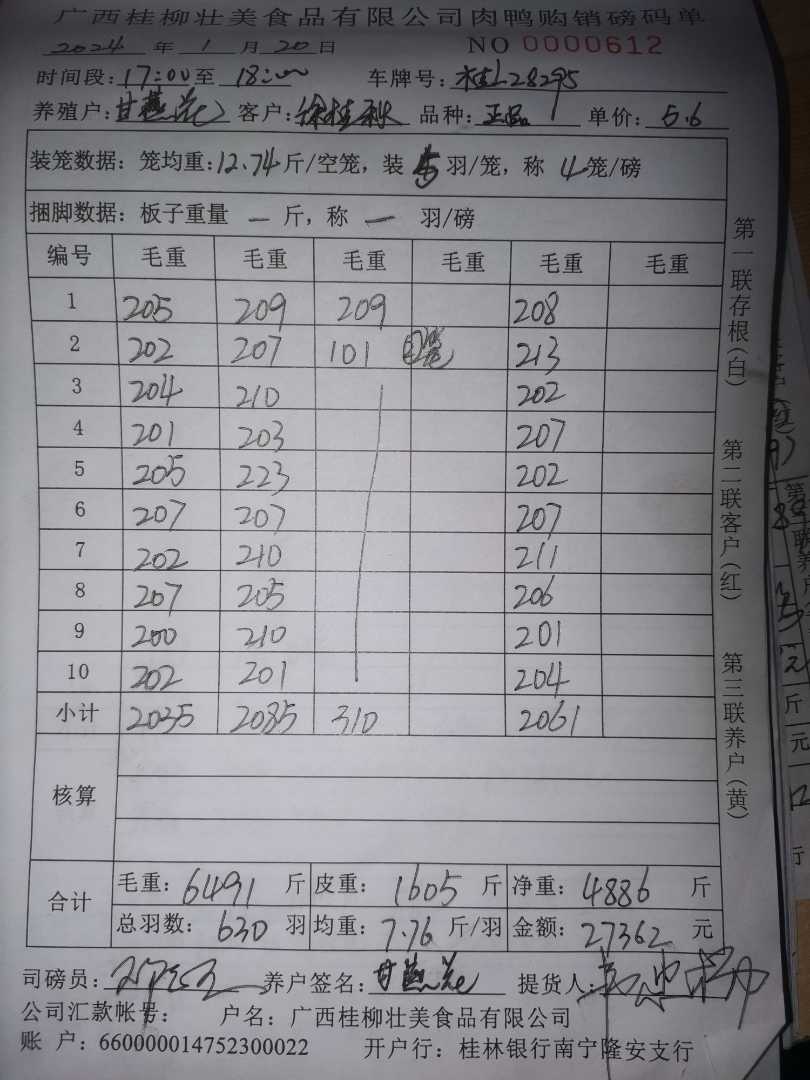 广西桂柳壮美食品有限公司肉鸭购销磅码单
2024 年 1 月 20 日 NO 0000612
时间段: 17:00 至 18:00 车牌号: 桂L28295
养殖户: 甘燕花 客户: 徐桂秋 品种: 正品 单价: 5.6
装笼数据: 笼均重: 12.74 斤/空笼, 装 5 羽/笼, 称 4 笼/磅
捆脚数据: 板子重量 一 斤, 称 一 羽/磅
编号 毛重 毛重 毛重 毛重 毛重 毛重
1 205 209 209 208
2 202 207 101 213
3 204 210 202
4 201 203 207
5 205 223 202
6 207 207 207
7 202 210 211
8 207 205 206
9 200 210 201
10 202 201 204
小计 2035 2085 310 2061
核算
合计 毛重: 6491 斤 皮重: 1605 斤 净重: 4886 斤
总羽数: 630 羽 均重: 7.76 斤/羽 金额: 27362 元
司磅员: 养户签名: 甘燕花 提货人:
公司汇款帐号: 户名: 广西桂柳壮美食品有限公司
账 户: 660000014752300022 开户行: 桂林银行南宁隆安支行
第一联存根(白)
第二联客户(红)
第三联养户(黄)